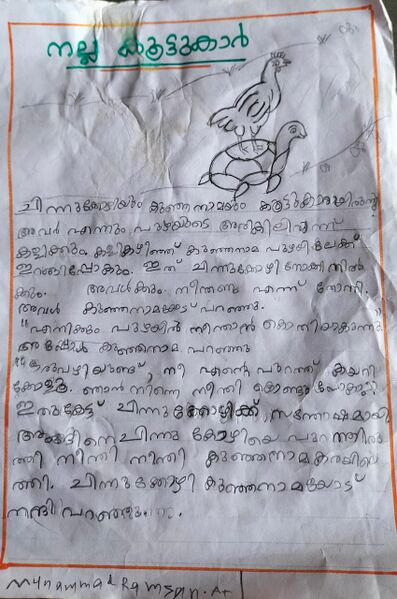 നല്ല കൂട്ടുകാർ
ചിന്നുകോഴിയും കുഞ്ഞനാമയും കൂട്ടുകാരായിരുന്നു
അവർ എന്നും പുഴയുടെ അരികിലിരുന്ന്
കളിക്കും. കളികഴിഞ്ഞ് കുഞ്ഞനാമ പുഴയിലേക്ക്
ഇറങ്ങിപ്പോകും. ഇത് ചിന്നുകോഴി നോക്കി നിൽ
ക്കും. അവൾക്കും നീന്തണം എന്ന് തോന്നി.
അവൾ കുഞ്ഞനാമയോട് പറഞ്ഞു.
"എനിക്കും പുഴയിൽ നീന്താൻ കൊതിയാകുന്നു"
അപ്പോൾ കുഞ്ഞനാമ പറഞ്ഞു
"ഒരുവഴിയുണ്ട്, നീ എന്റെ പുറത്ത് കയറി
ക്കോളൂ. ഞാൻ നിന്നെ നീന്തി കൊണ്ടുപോകാം"
ഇതുകേട്ട് ചിന്നുകോഴിക്ക് സന്തോഷമായി
അങ്ങനെ ചിന്നു കോഴിയെ പുറത്തിരു
ത്തി നീന്തി നീന്തി കുഞ്ഞനാമ കരയിലെ
ത്തി. ചിന്നുകോഴി കുഞ്ഞനാമയോട്
നന്ദി പറഞ്ഞു.
Muhammad Ramsan. A+